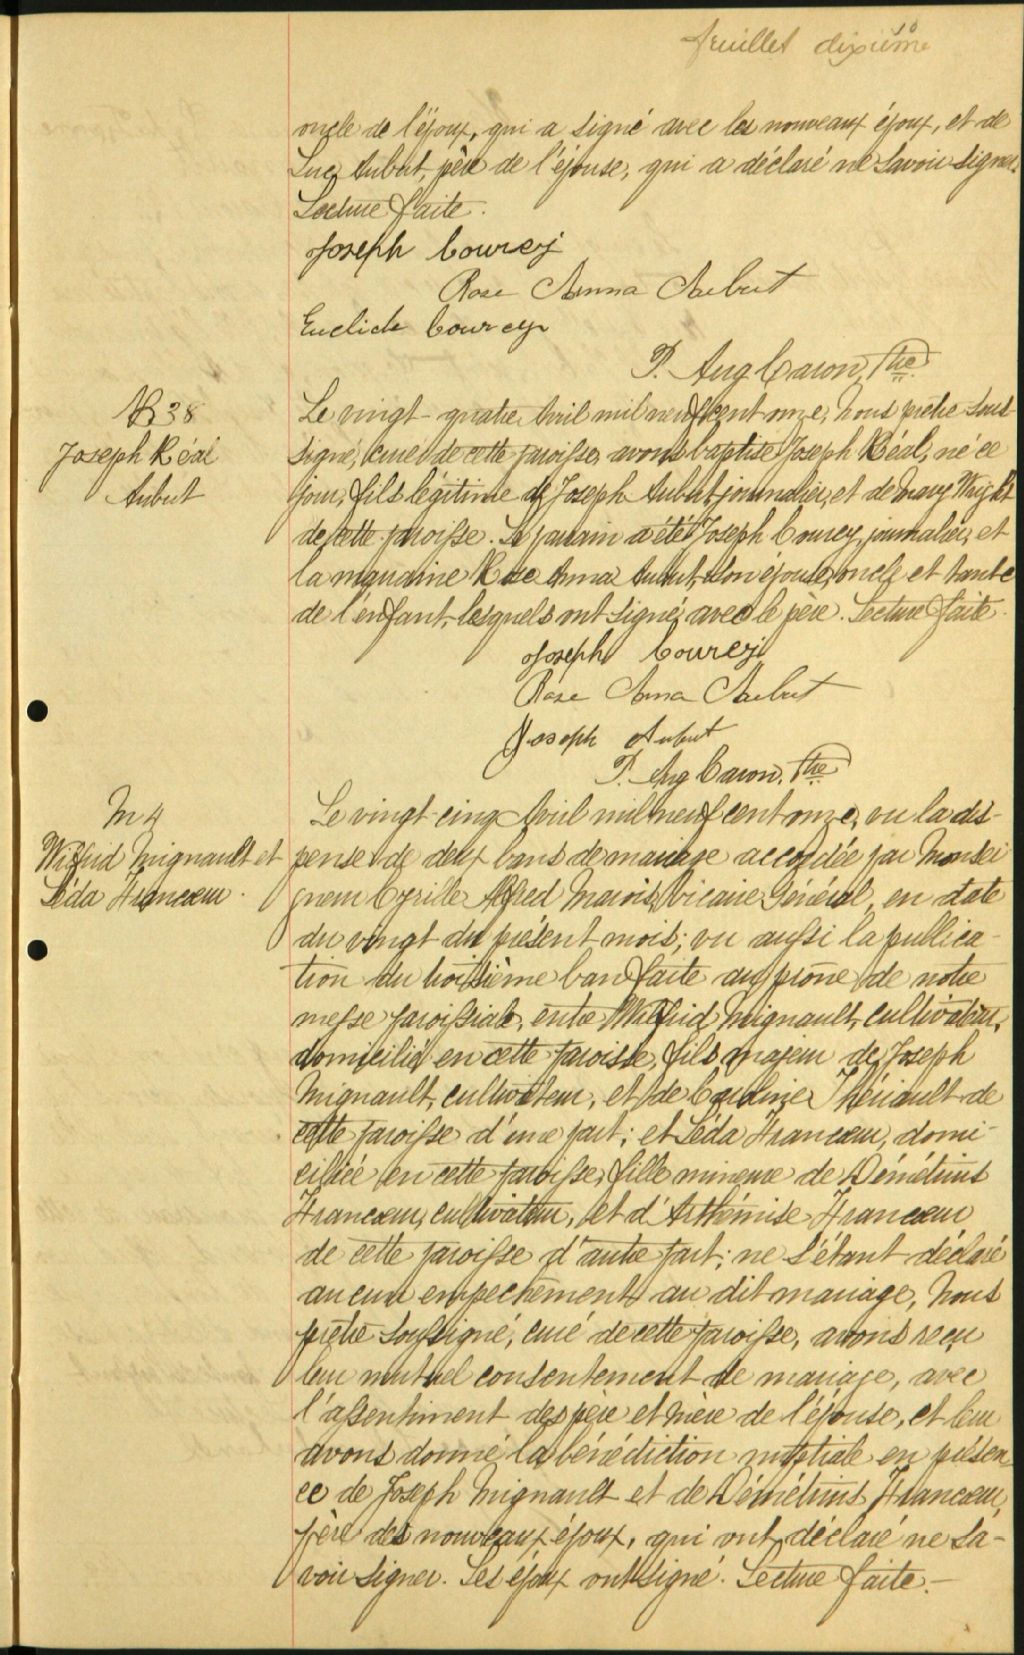 feuillet dixième
10
oncle de l'époux, qui a signé avec les nouveaux époux, et de
Luc Aubut, père de l'épouse, qui a déclaré ne savoir signer.
Lecture faite.
Joseph Courcy
Rose Anna Aubut
Euclide Courcy
P. Aug Caron, Ptre
B 38
Joseph Réal
Aubut
Le vingt-quatre Avril mil neuf cent onze, Nous prêtre sous-
signé, curé de cette paroisse, avons baptisé Joseph Réal, né ce
jour, fils légitime de Joseph Aubut, journalier, et de Mary Wright
de cette paroisse. Le parrain a été Joseph Courcy, journalier, et
la marraine Rose Anna Aubut, son épouse, oncle et tante
de l'enfant, lesquels ont signé avec le père. Lecture faite.
Joseph Courcy
Rose Anna Aubut
Joseph Aubut
P. Aug Caron, Ptre
M 4
Wilfrid Mignault et
Léda Francœur.
Le vingt-cinq Avril mil neuf cent onze, vu la dis-
pense de deux bans de mariage accordée par Monsei
gneur Cyrille Alfred Marois, Vicaire Général, en date
du vingt du présent mois; vu aussi la publica-
tion du troisième ban faite au prône de notre
messe paroissiale, entre Wilfrid Mignault, cultivateur,
domicilié en cette paroisse, fils majeur de Joseph
Mignault, cultivateur, et de Caroline Thériault de
cette paroisse d'une part; et Léda Francœur, domi-
ciliée en cette paroisse, fille mineure de Démétrius
Francœur, cultivateur, et d'Arthémise Francœur
de cette paroisse d'autre part; ne s'étant déclaré
aucun empechement au dit mariage, Nous
prêtre soussigné, curé de cette paroisse, avons reçu
leur mutuel consentement de mariage, avec
l'assentiment des père et mère de l'épouse, et leur
avons donné la bénédiction nuptiale en présen-
ce de Joseph Mignault et de Démétrius Francœur,
père des nouveaux époux, qui ont déclaré ne sa-
voir signer. Les époux ont signé. Lecture faite.-